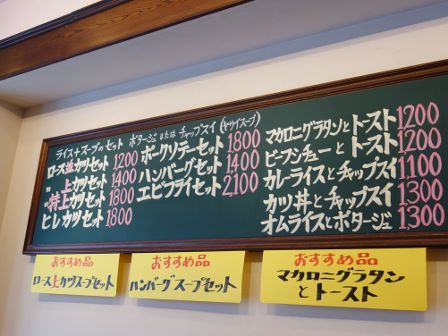 ライス+スープのセット ポタージュ または チャップスイ(ヤサイスープ)
ロース並カツセット 1200
〃 上カツセット 1400
〃 特上カツセット 1800
ヒレカツセット 1800
ポークソテーセット 1800
ハンバーグセット 1400
エビフライセット 2,100
マカロニグラタンとトースト 1200
ビーフシチューとトースト 1200
カレーライスとチャップスイ 1,100
カツ丼とチャップスイ 1,300
オムライスとポタージュ 1,300
おすすめ品
ロース上カツスープセット
おすすめ品
ハンバーグスープセット
おすすめ品
マカロニグラタン
とトースト